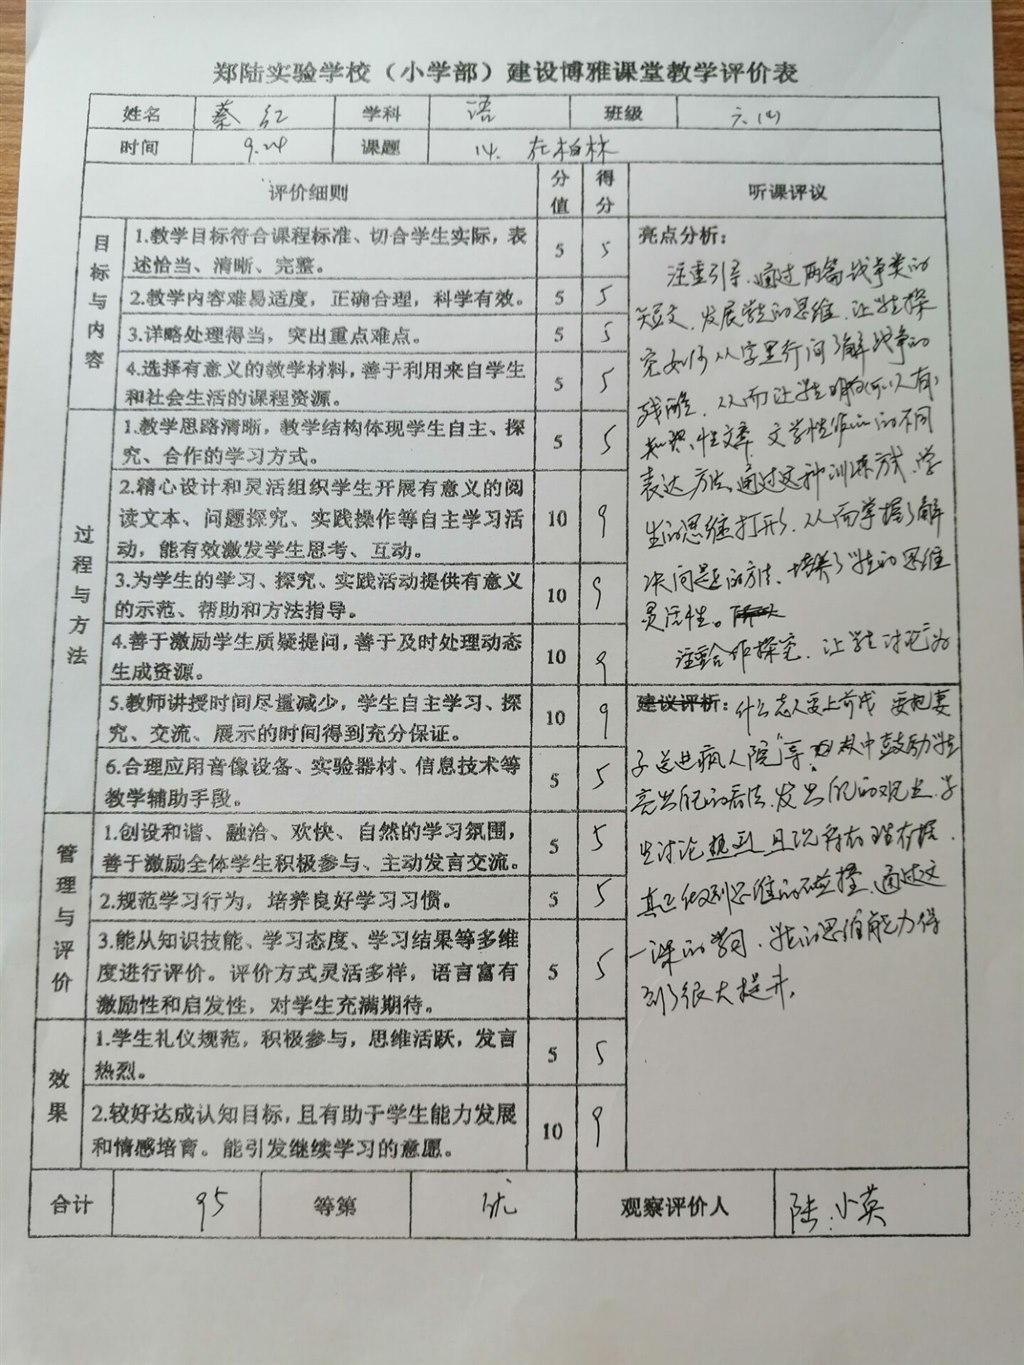 郑陆实验学校（小学部）建设博雅课堂教学评价表
姓名 蔡红 学科 语 班级 六(4)
时间 9.24 课题 14. 在柏林
评价细则 分值 得分 听课评议
目标与内容
1.教学目标符合课程标准、切合学生实际，表
述恰当、清晰、完整。 5 5
2.教学内容难易适度，正确合理，科学有效。 5 5
3.详略处理得当，突出重点难点。 5 5
4.选择有意义的教学材料，善于利用来自学生
和社会生活的课程资源。 5 5
过程与方法
1.教学思路清晰，教学结构体现学生自主、探
究、合作的学习方式。 5 5
2.精心设计和灵活组织学生开展有意义的阅
读文本、问题探究、实践操作等自主学习活
动，能有效激发学生思考、互动。 10 9
3.为学生的学习、探究、实践活动提供有意义
的示范、帮助和方法指导。 10 9
4.善于激励学生质疑提问，善于及时处理动态
生成资源。 10 9
5.教师讲授时间尽量减少，学生自主学习、探
究、交流、展示的时间得到充分保证。 10 9
6.合理应用音像设备、实验器材、信息技术等
教学辅助手段。 5 5
管理与评价
1.创设和谐、融洽、欢快、自然的学习氛围，
善于激励全体学生积极参与、主动发言交流。 5 5
2.规范学习行为，培养良好学习习惯。 5 5
3.能从知识技能、学习态度、学习结果等多维
度进行评价。评价方式灵活多样，语言富有
激励性和启发性，对学生充满期待。 5 5
效果
1.学生礼仪规范，积极参与，思维活跃，发言
热烈。 5 5
2.较好达成认知目标，且有助于学生能力发展
和情感培育。能引发继续学习的意愿。 10 9
亮点分析：
注重引导、通过两篇战争类的
短文、发展学生的思维、让学生探
究如何从字里行间了解战争的
残酷、从而让学生
知识性文章、文学性作品的不同
表达方法、通过这种训练方式、学
生的思维打开了、从而掌握了解
决问题的方法、培养了学生的思维
灵活性。
注重合作探究、让学生讨论为
建议评析：什么老人要上前线 要把妻
子送进疯人院等、从中鼓励学生
亮出自己的看法、发出自己的观点、学
生讨论热烈且说得有理有据、
真正做到思维的碰撞、通过这
一课的学习、学生的思维能力得
到了很大提升。
合计 95 等第 优 观察评价人 陆小英